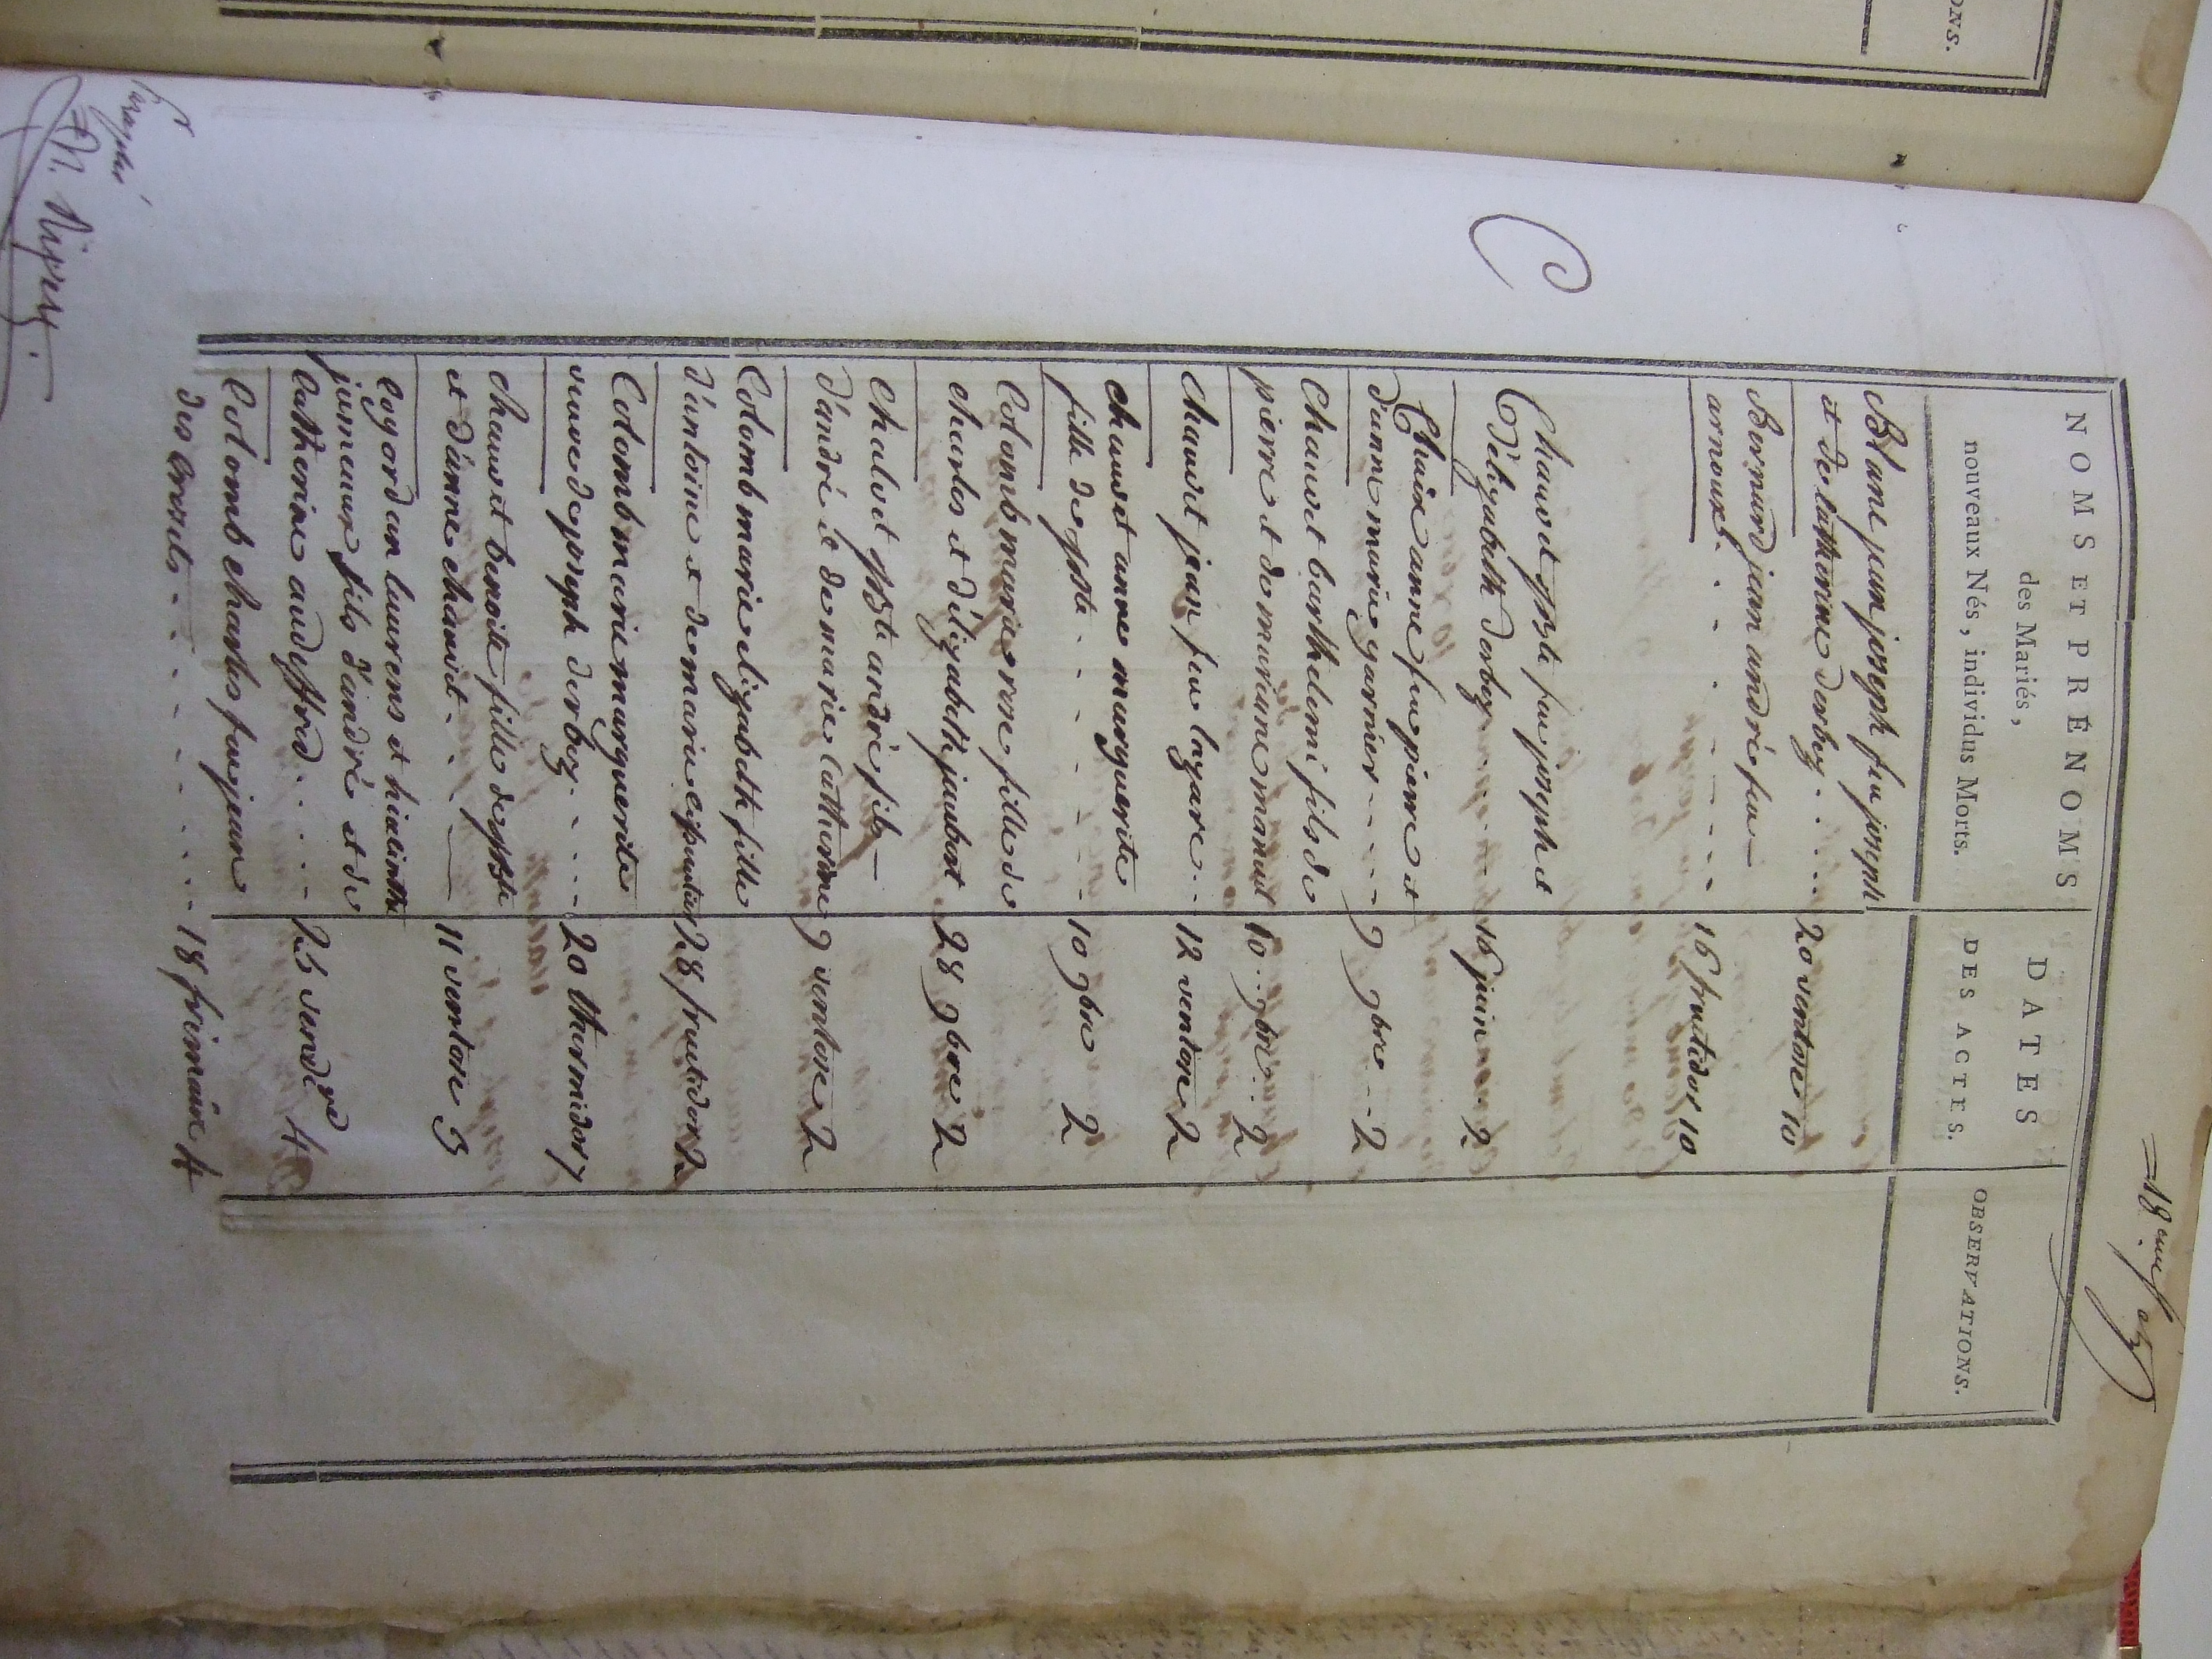 ONS.
18eme
NOMS ET PRÉNOMS
des Mariés,
nouveaux Nés, individus Morts.
DATES
DES ACTES.
OBSERVATIONS.
Blanc jean joseph feu joseph
et de Catherine dorbey . . . . 20 ventose 10
Bernard jean andré feu
arnoux . . . . . . . 16 fructidor 10
C
Chauvet feu joseph et
d'elizabeth dorbey . . . . 16 juin . . 2
Chaix anne feu pierre et
d'anne marie garnier . . . . 9 9bre . . 2
Chauvet barthelemi fils de
pierre et de mariane 10 . . 9bre . . 2
Chauvet jean feu lazare . . 12 ventose 2
Chauvet anne marguerite
fille de . . . . . . . 10 9bre 2
Colomb marie rose fille de
charles et d'élizabeth jaubert 28 9bre 2
Chalvet andré fils
d'andré et de marie Catherine 9 ventose 2
Colomb marie elizabeth fille
d'antoine et de marie 28 fructidor 2
Colomb marie marguerite
veuve de joseph dorbey . . . . 20 thermidor 7
Chauvet benoite fille de
et d'anne chauvet . . . 11 ventose 3
Cogordan laurens et hiacinthe
jumeaux fils d'andré et de
Catherine audeffred . . . . 25 vendre 4
Colomb charles feu jean
des . . . . . . . 18 frimaire 4
Paraphé